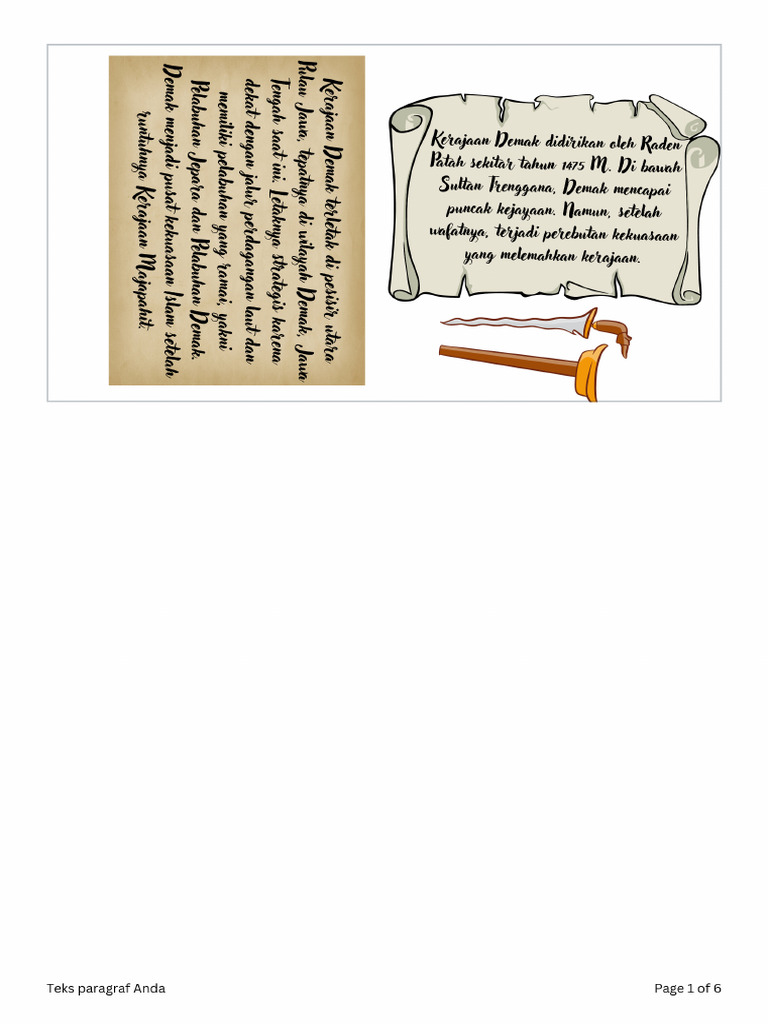 Kerajaan Demak terletak di pesisir utara
Pulau Jawa, tepatnya di wilayah Demak, Jawa
Tengah saat ini. Letaknya strategis karena
dekat dengan jalur perdagangan laut dan
memiliki pelabuhan yang ramai, yakni
Pelabuhan Jepara dan Pelabuhan Demak.
Demak menjadi pusat kekuasaan Islam setelah
runtuhnya Kerajaan Majapahit.
Kerajaan Demak didirikan oleh Raden
Patah sekitar tahun 1475 M. Di bawah
Sultan Trenggana, Demak mencapai
puncak kejayaan. Namun, setelah
wafatnya, terjadi perebutan kekuasaan
yang melemahkan kerajaan.
Teks paragraf Anda
Page 1 of 6